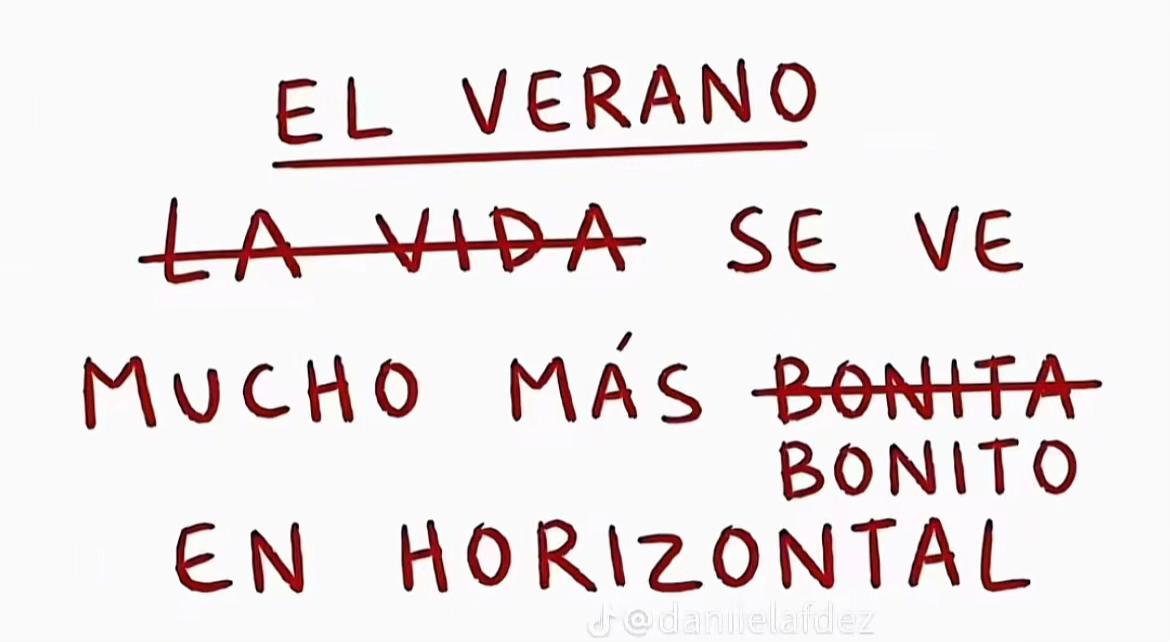 EL VERANO
LA VIDA SE VE
MUCHO MÁS BONITA
BONITO
EN HORIZONTAL
@daniielafdez